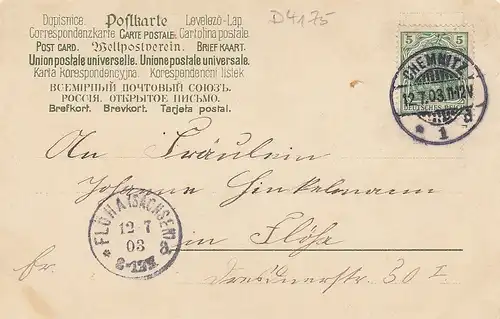 D4175
Dopisnice. Postkarte Levelező-Lap.
Correspondenzkarte CARTE POSTALE. Cartolina postale.
POST CARD. Weltpostverein. BRIEFKAART.
Union postale universelle. Unione postale universale.
Karta Korespondencyjna. Korespondenčni listek
ВСЕМІРНЫЙ ПОЧТОВЫЙ СОЮЗЪ.
РОССІЯ. ОТКРЫТОЕ ПИСЬМО.
Brefkort. Brevkort. Tarjeta postal.
5 5
DEUTSCHES REICH
CHEMNITZ
12.7.03.11-12V
* 1 d
An Fräulein
Johanne Hinkelmann
in Flöha
Fr. Dresdnerstr. 30 I
FLÖHA (SACHSEN)
12-7
03